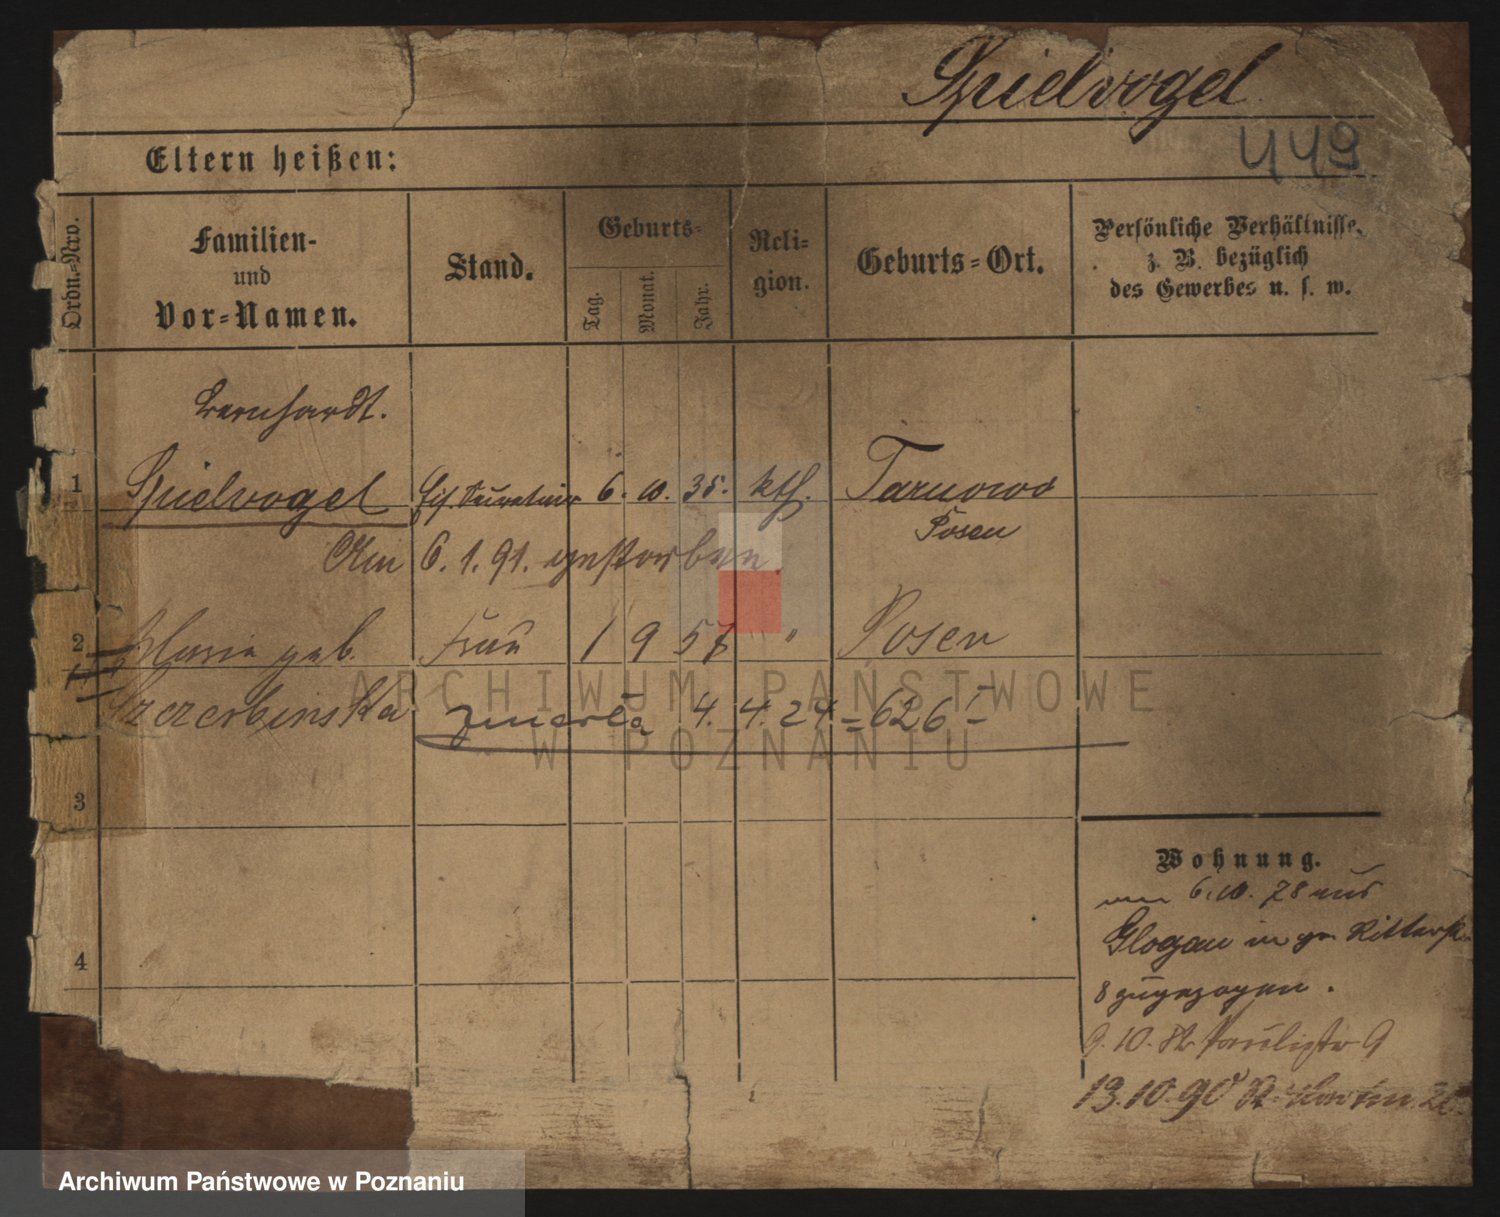 Spielvogel
449
Eltern heißen:
Ordn.-Nro.
Familien-
und
Vor-Namen.
Stand.
Geburts-
Tag.
Monat.
Jahr.
Reli-
gion.
Geburts-Ort.
Persönliche Verhältnisse,
z. B. bezüglich
des Gewerbes u. s. w.
Bernhardt.
1 Spielvogel 6. 10. 35. kth. Tarnowo
Posen
Am 6. 1. 91. gestorben.
2 Maria geb. Frau 1 9 57 " Posen
Szczerbinska zmarła 4. 4. 24 = 626 =
3
4
Wohnung.
6. 10. 78 aus
Glogau Ritterstr.
8 zugezogen.
9. 10. Paulistr 9
13. 10. 90 St. Martin
ARCHIWUM PAŃSTWOWE
W POZNANIU
Archiwum Państwowe w Poznaniu